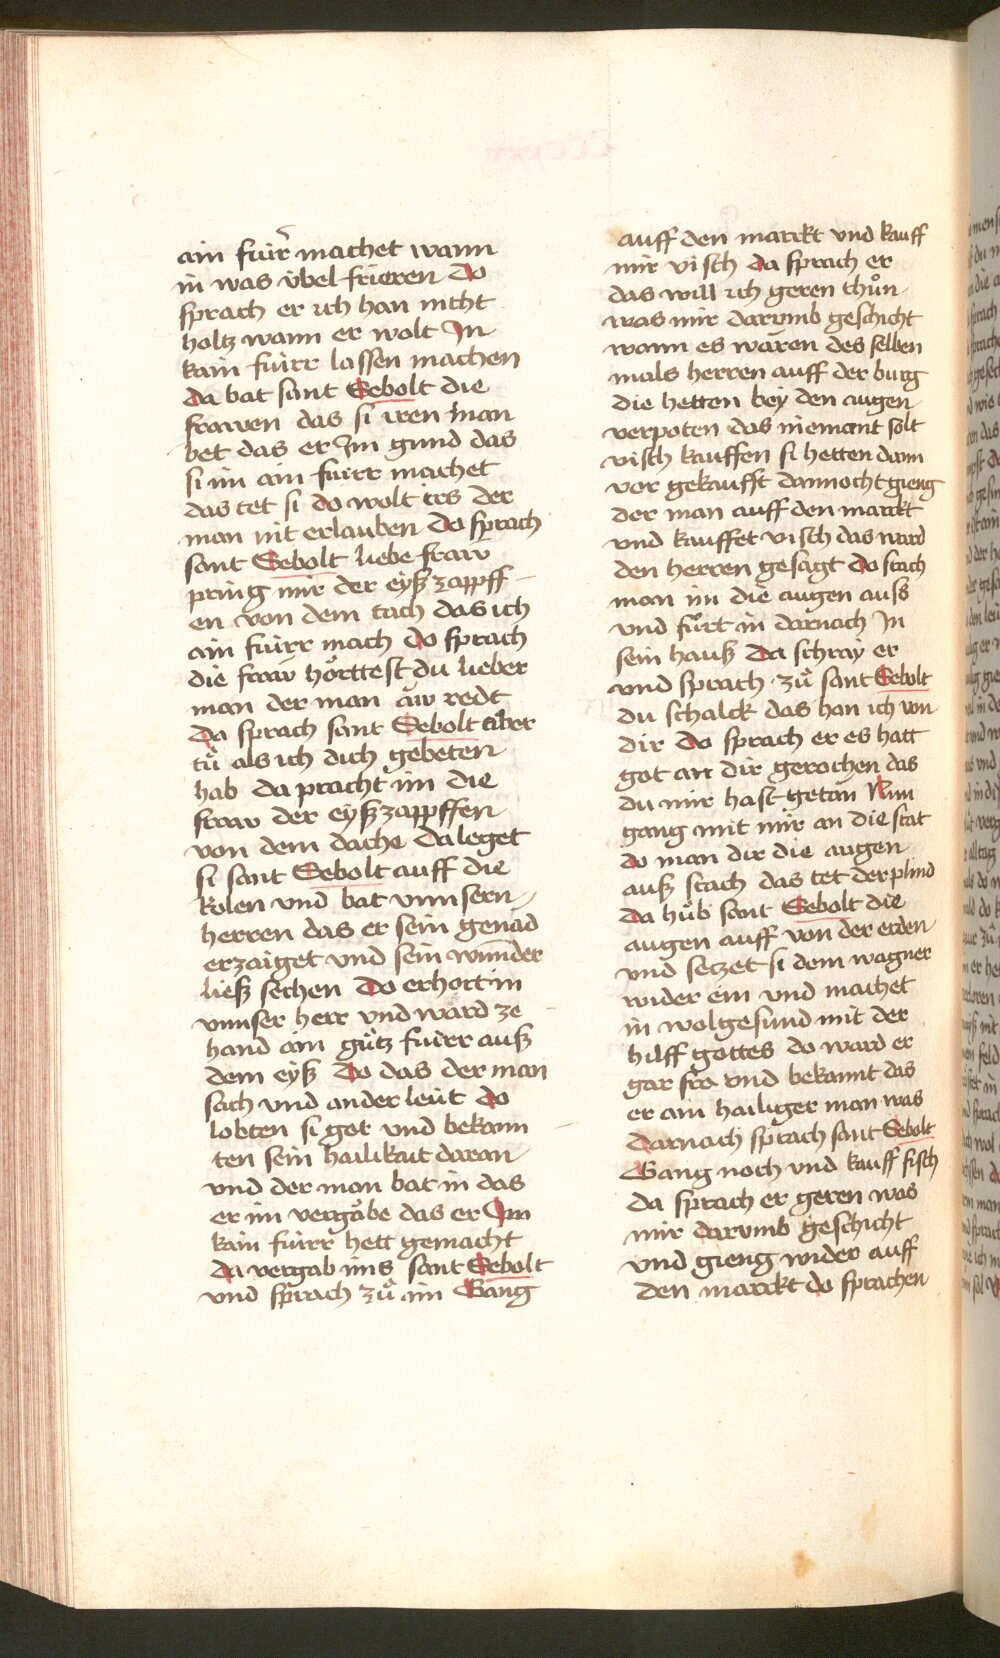 ain fuir machet wann
in was übel frieren Do
sprach er ich han nicht
holtz wann er wolt In
kain fuirr lassen machen
da bat sant Sebolt die
frawen das si iren man
bet das er Im gund das
si im ain fuirr machet
das tet si do wolt irs der
man nit erlauben Do sprach
sant Sebolt liebe fraw
pring mir der eyß zapff
en von dem tach das ich
ain fuirr mach do sprach
die fraw hörttest du lieber
man der man aw redt
Da sprach sant Sebolt aber
tů als ich dich gebeten
hab da pracht im die
fraw der eyßzappffen
von dem dache da leget
si sant Sebolt auff die
kolen und bat vnnsern
herren das er sein genad
erzaiget und sein wunder
ließ sechen Do erhort in
vnnser herr vnd ward ze
hand ain gůtz fuirr auß
dem eyß Do das der man
sach vnd ander leüt do
lobten si got vnd bekann
ten sein hailikait daran
vnd der man bat in das
er im vergäbe das er Im
kain fuirr hett gemacht
da vergab ims sant Sebolt
vnd sprach zů im Gang
auff den marckt vnd kauff
mir visch da sprach er
das will ich geren thůn
was mir darvmb geschicht
wann es wären des selben
mals herren auff der burg
die hetten bey den augen
verpoten das niemant solt
visch kauffen si hetten dann
vor gekaufft dannocht gieng
der man auff den marckt
vnd kauffet visch das ward
den herren gesagt do stach
man im die augen auss
vnd fůrt in darnach In
sein hauß Da schray er
vnd sprach zů sant Sebolt
du schalck das han ich von
dir do sprach er es hatt
got an dir gerochen das
du mir hast getan Nun
gang mit mir an die stat
do man dir die augen
auß stach das tet der plind
da hůb sant Sebolt die
augen auff von der erden
vnd setzet si dem wagner
wider ein vnd machet
in wolgesund mit der
hilff gottes do ward er
gar fro vnd bekannt das
er ain hailiger man was
darnach sprach sant Sebolt
Gang noch vnd kauff fisch
da sprach er geren was
mir darvmb geschicht
vnd gieng wider auff
den marckt do sprachen